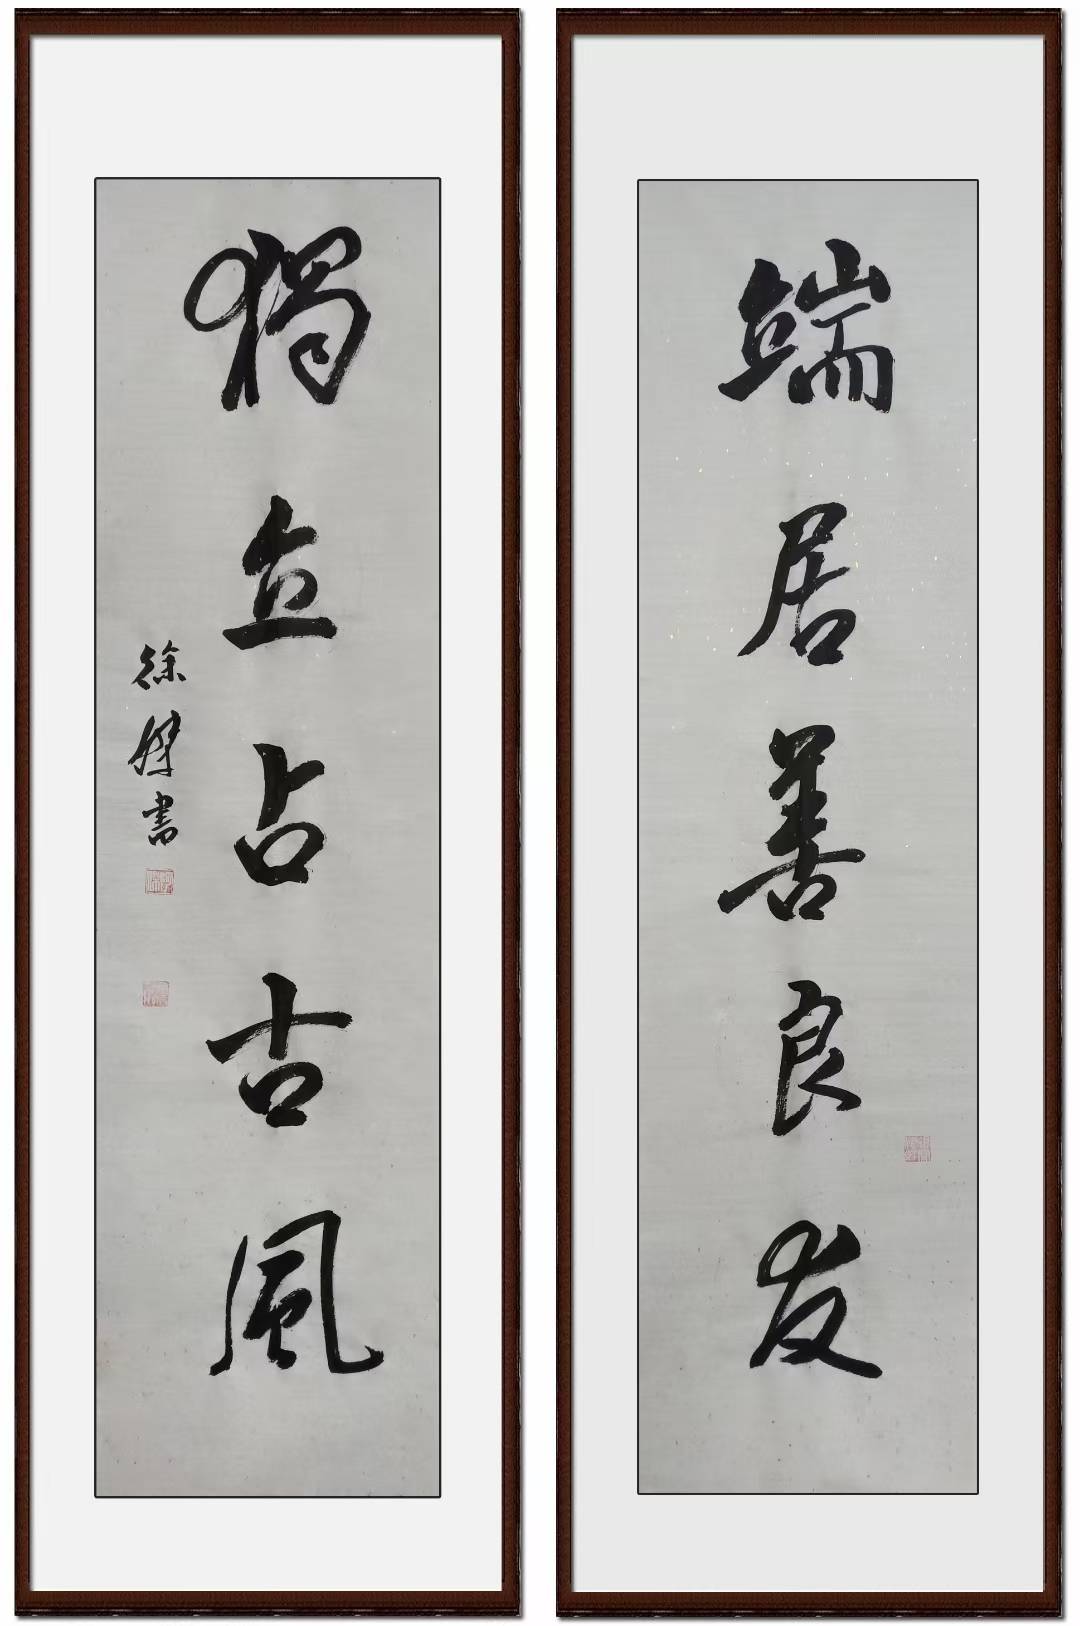 端居善良友
獨立占古風
徐傑書